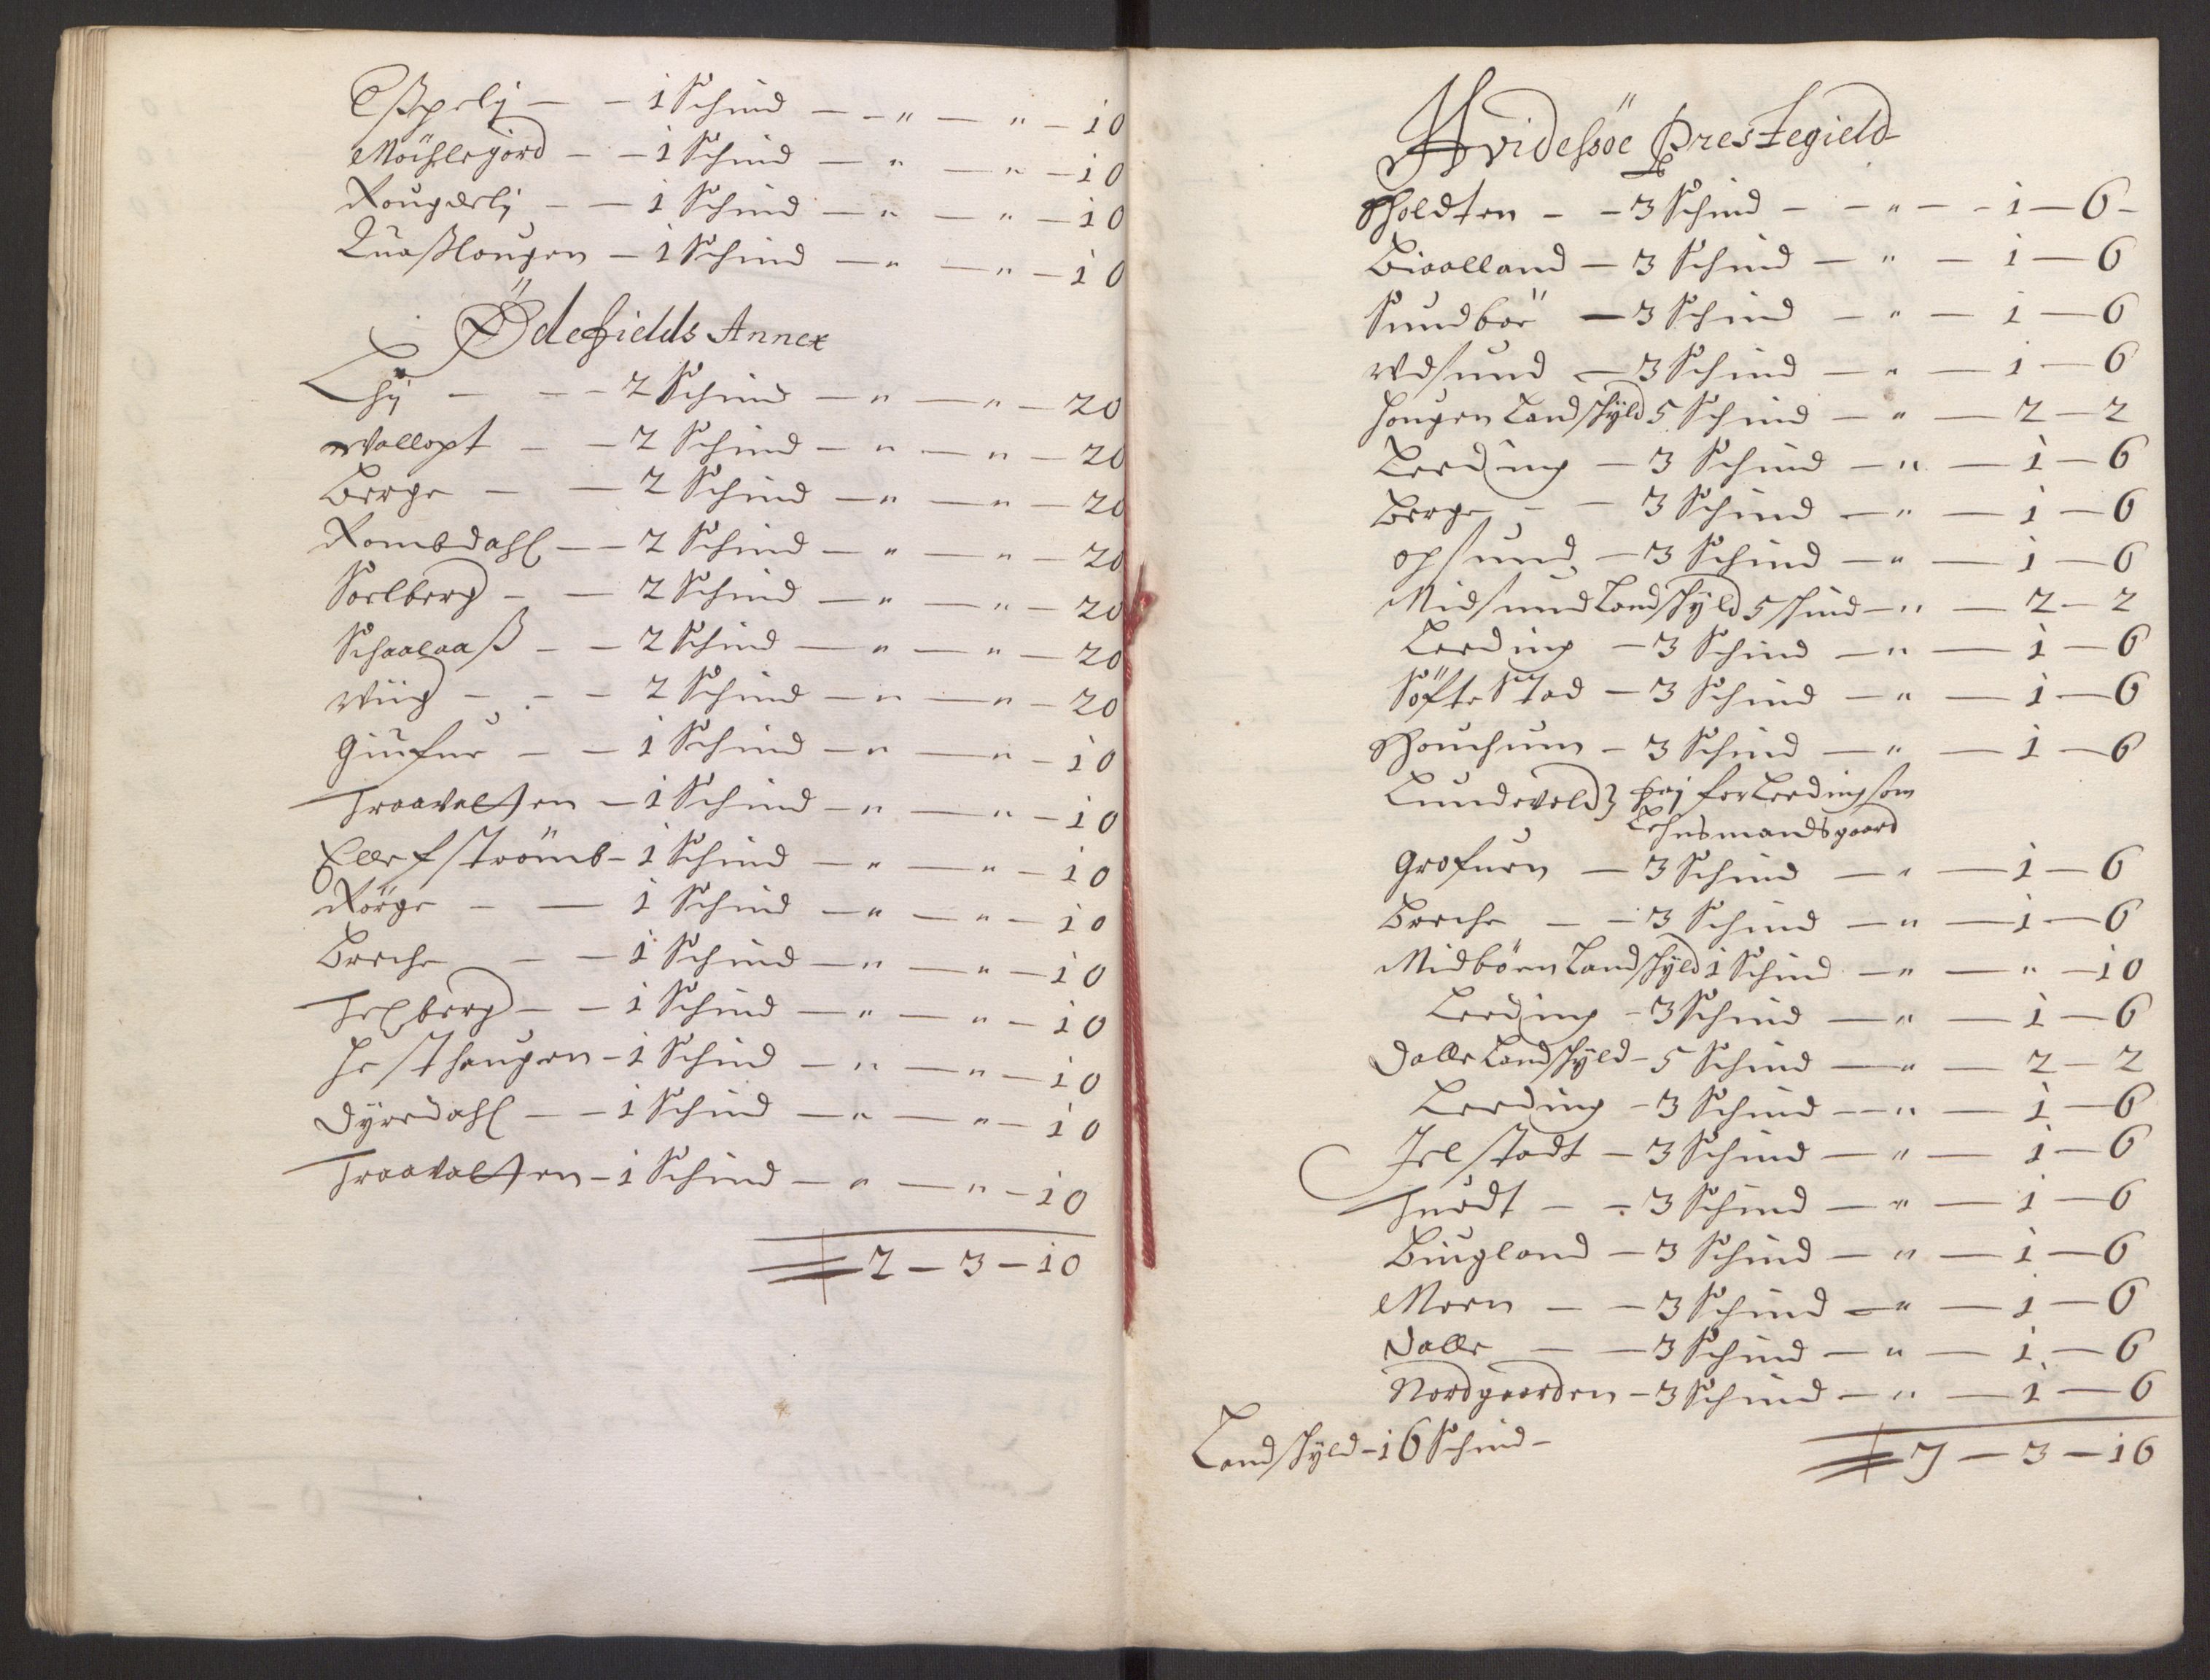 Espelj — — 1 Schind — — " — " — 10
Möchlegiord — — 1 Schind — " — " — 10
Rougdelj — — 1 Schind — " — " — 10
Quaßlougen — 1 Schind — " — " — 10
Ödefields Annex
Lij — — — 2 Schind — " — " — 20
Wallopt — — 2 Schind — " — " — 20
Berge — — 2 Schind — " — " — 20
Rombdahl — — 2 Schind — " — " — 20
Soelberg — — 2 Schind — " — " — 20
Schaalaaß — — 2 Schind — " — " — 20
Wiig — — — 2 Schind — " — " — 20
Giufne — — 1 Schind — " — " — 10
Traavatten — 1 Schind — " — " — 10
Ellefströmb — 1 Schind — " — " — 10
Rörge — — 1 Schind — " — " — 10
Breche — — 1 Schind — " — " — 10
Hexberg — — 1 Schind — " — " — 10
Hesthaugen — 1 Schind — " — " — 10
Dyrrdahl — — 1 Schind — " — " — 10
Traavatten — 1 Schind — " — " — 10
2 — 3 — 10
Hvidesöe Prestegield
Holdten — — 3 Schind — — " — — 1 — 6 —
Biaalland — 3 Schind — " — 1 — 6
Sundböe — 3 Schind — " — 1 — 6
Wdsund — 3 Schind — " — 1 — 6
Hougen Landschyld 5 Schind — " — 2 — 2
Leeding — 3 Schind — " — 1 — 6
Berge — — 3 Schind — " — 1 — 6
Opsund — 3 Schind — " — 1 — 6
Midsund Landschyld 5 schind — " — 2 — 2
Leeding — 3 Schind — " — 1 — 6
Söfte Stad — 3 Schind — " — 1 — 6
Houchum — 3 Schind — " — 1 — 6
Lundevold } frj for Leeding som
Lehnsmandsgaard
Grofuen — 3 Schind — " — 1 — 6
Breche — — 3 Schind — " — 1 — 6
Midböen Landschyld 1 Schind — " — " — 10
Leeding — 3 Schind — " — 1 — 6
Dalle Landschyld — 5 Schind — " — 2 — 2
Leeding — 3 Schind — " — 1 — 6
Jelstadt — 3 Schind — " — 1 — 6
Tuedt — — 3 Schind — " — 1 — 6
Biugland — 3 Schind — " — 1 — 6
Moen — — 3 Schind — " — 1 — 6
Dalle — — 3 Schind — " — 1 — 6
Nordgaarden — 3 Schind — " — 1 — 6
Landschyld — 16 Schind —
7 — 3 — 16